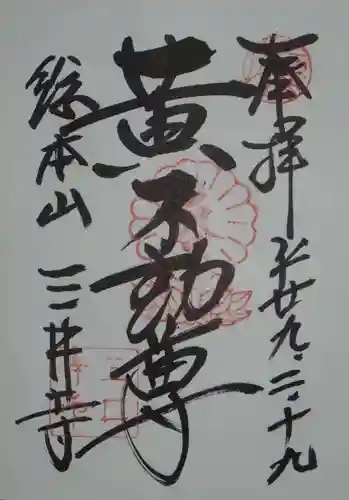 奉拝 平廿九.二.十九
黄不動尊
総本山 三井寺